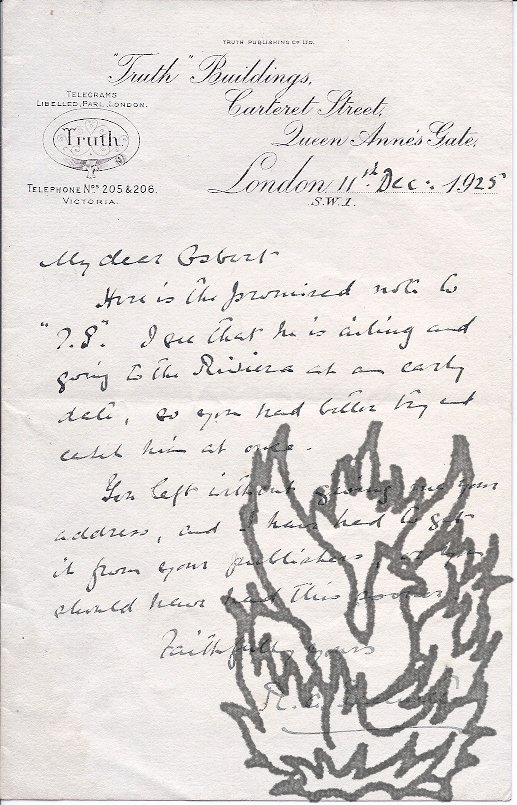 TRUTH PUBLISHING CO LTD.
"Truth" Buildings,
Carteret Street,
Queen Anne's Gate,
London 11th Dec: 1925
S.W.1.
TELEGRAMS
LIBELLED, PARL, LONDON.
Truth
TELEPHONE Nos 205 & 206.
VICTORIA.
My dear Osbert
Here is the promised note to
"T.P." I see that he is ailing and
going to the Riviera at an early
date, so you had better try and
catch him at once.
You left without giving me your
address, and I have had to get
it from your publishers, or you
should have had this sooner.
Faithfully yours